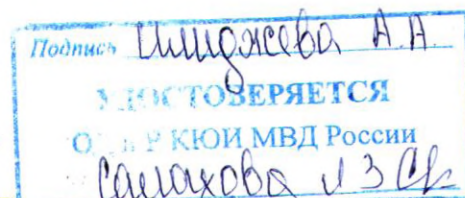 Подпись Шиджева А.А.
УДОСТОВЕРЯЕТСЯ
КЮИ МВД России
Салахова